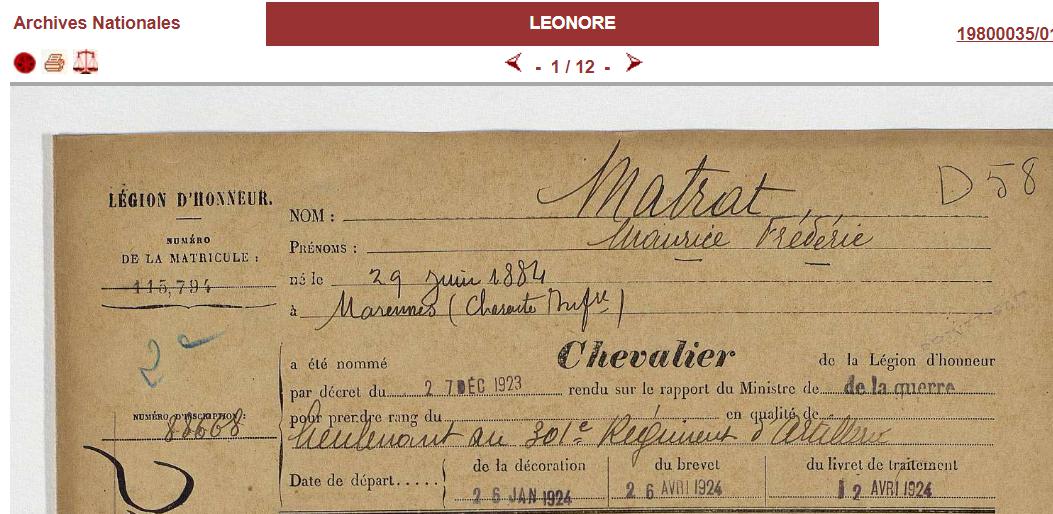 Archives Nationales
LEONORE
19800035/01
- 1 / 12 -
D 58
LÉGION D'HONNEUR.
NUMÉRO
DE LA MATRICULE :
115,794
NOM : Matrat
PRÉNOMS : Maurice Frédéric
né le 29 Juin 1884
à Marennes (Charente Infre)
a été nommé Chevalier de la Légion d'honneur
par décret du 27 DÉC 1923 rendu sur le rapport du Ministre de de la guerre
NUMÉRO D'INSCRIPTION :
pour prendre rang du en qualité de
lieutenant au 301e Régiment d'Artillerie
de la décoration du brevet du livret de traitement
Date de départ.....
26 JAN 1924 26 AVRI 1924 12 AVRI 1924